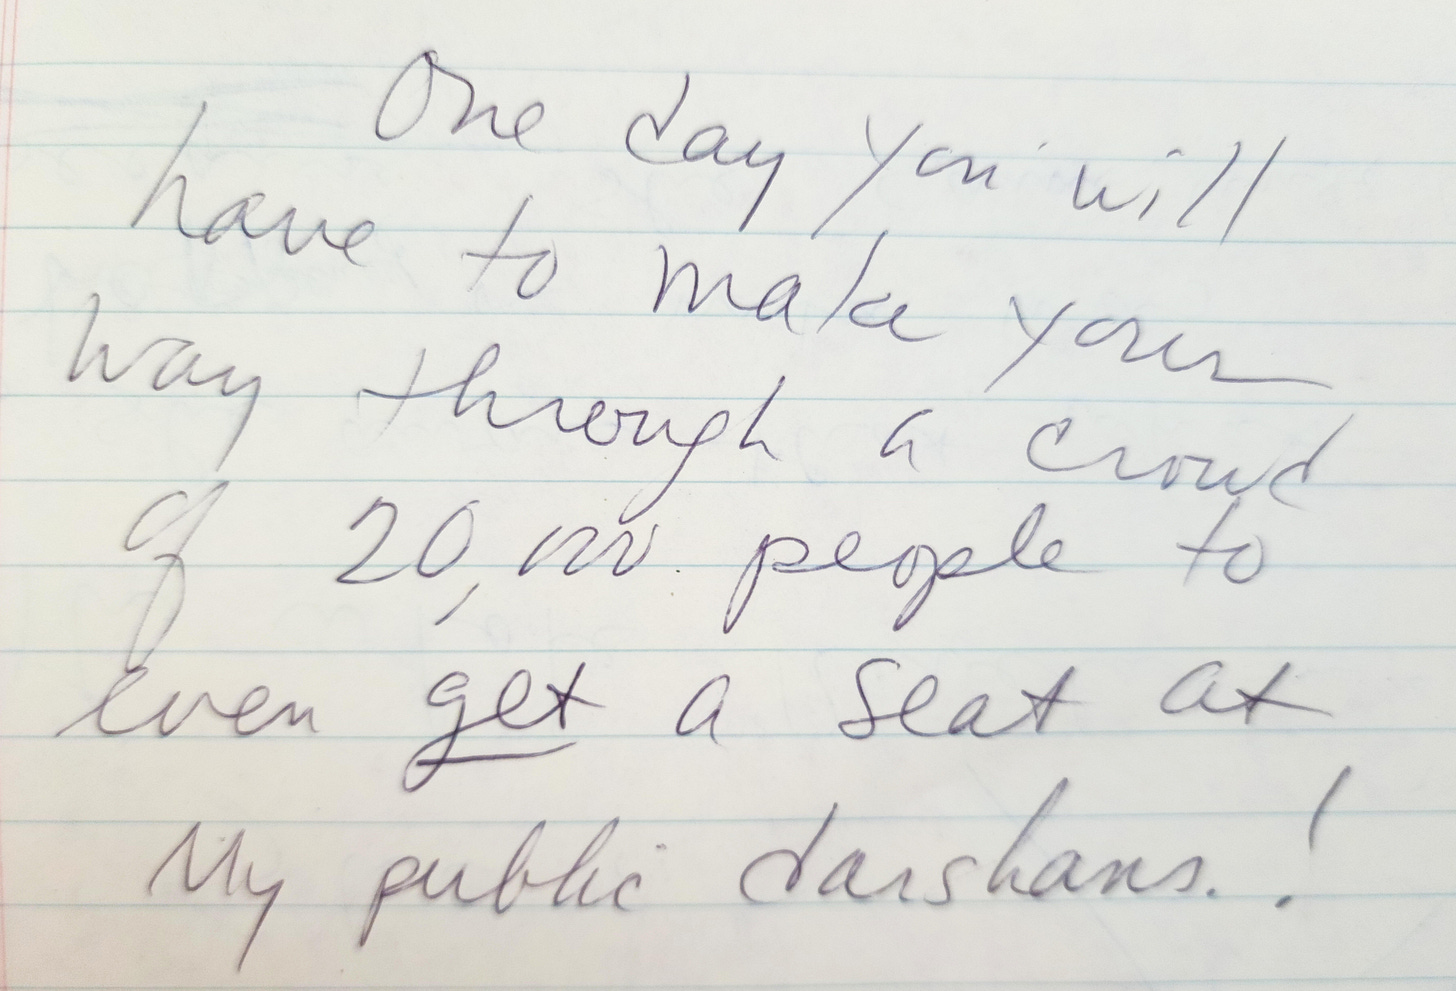 One day you will
have to make your
way through a crowd
of 20,000 people to
even get a seat at
My public darshans.!